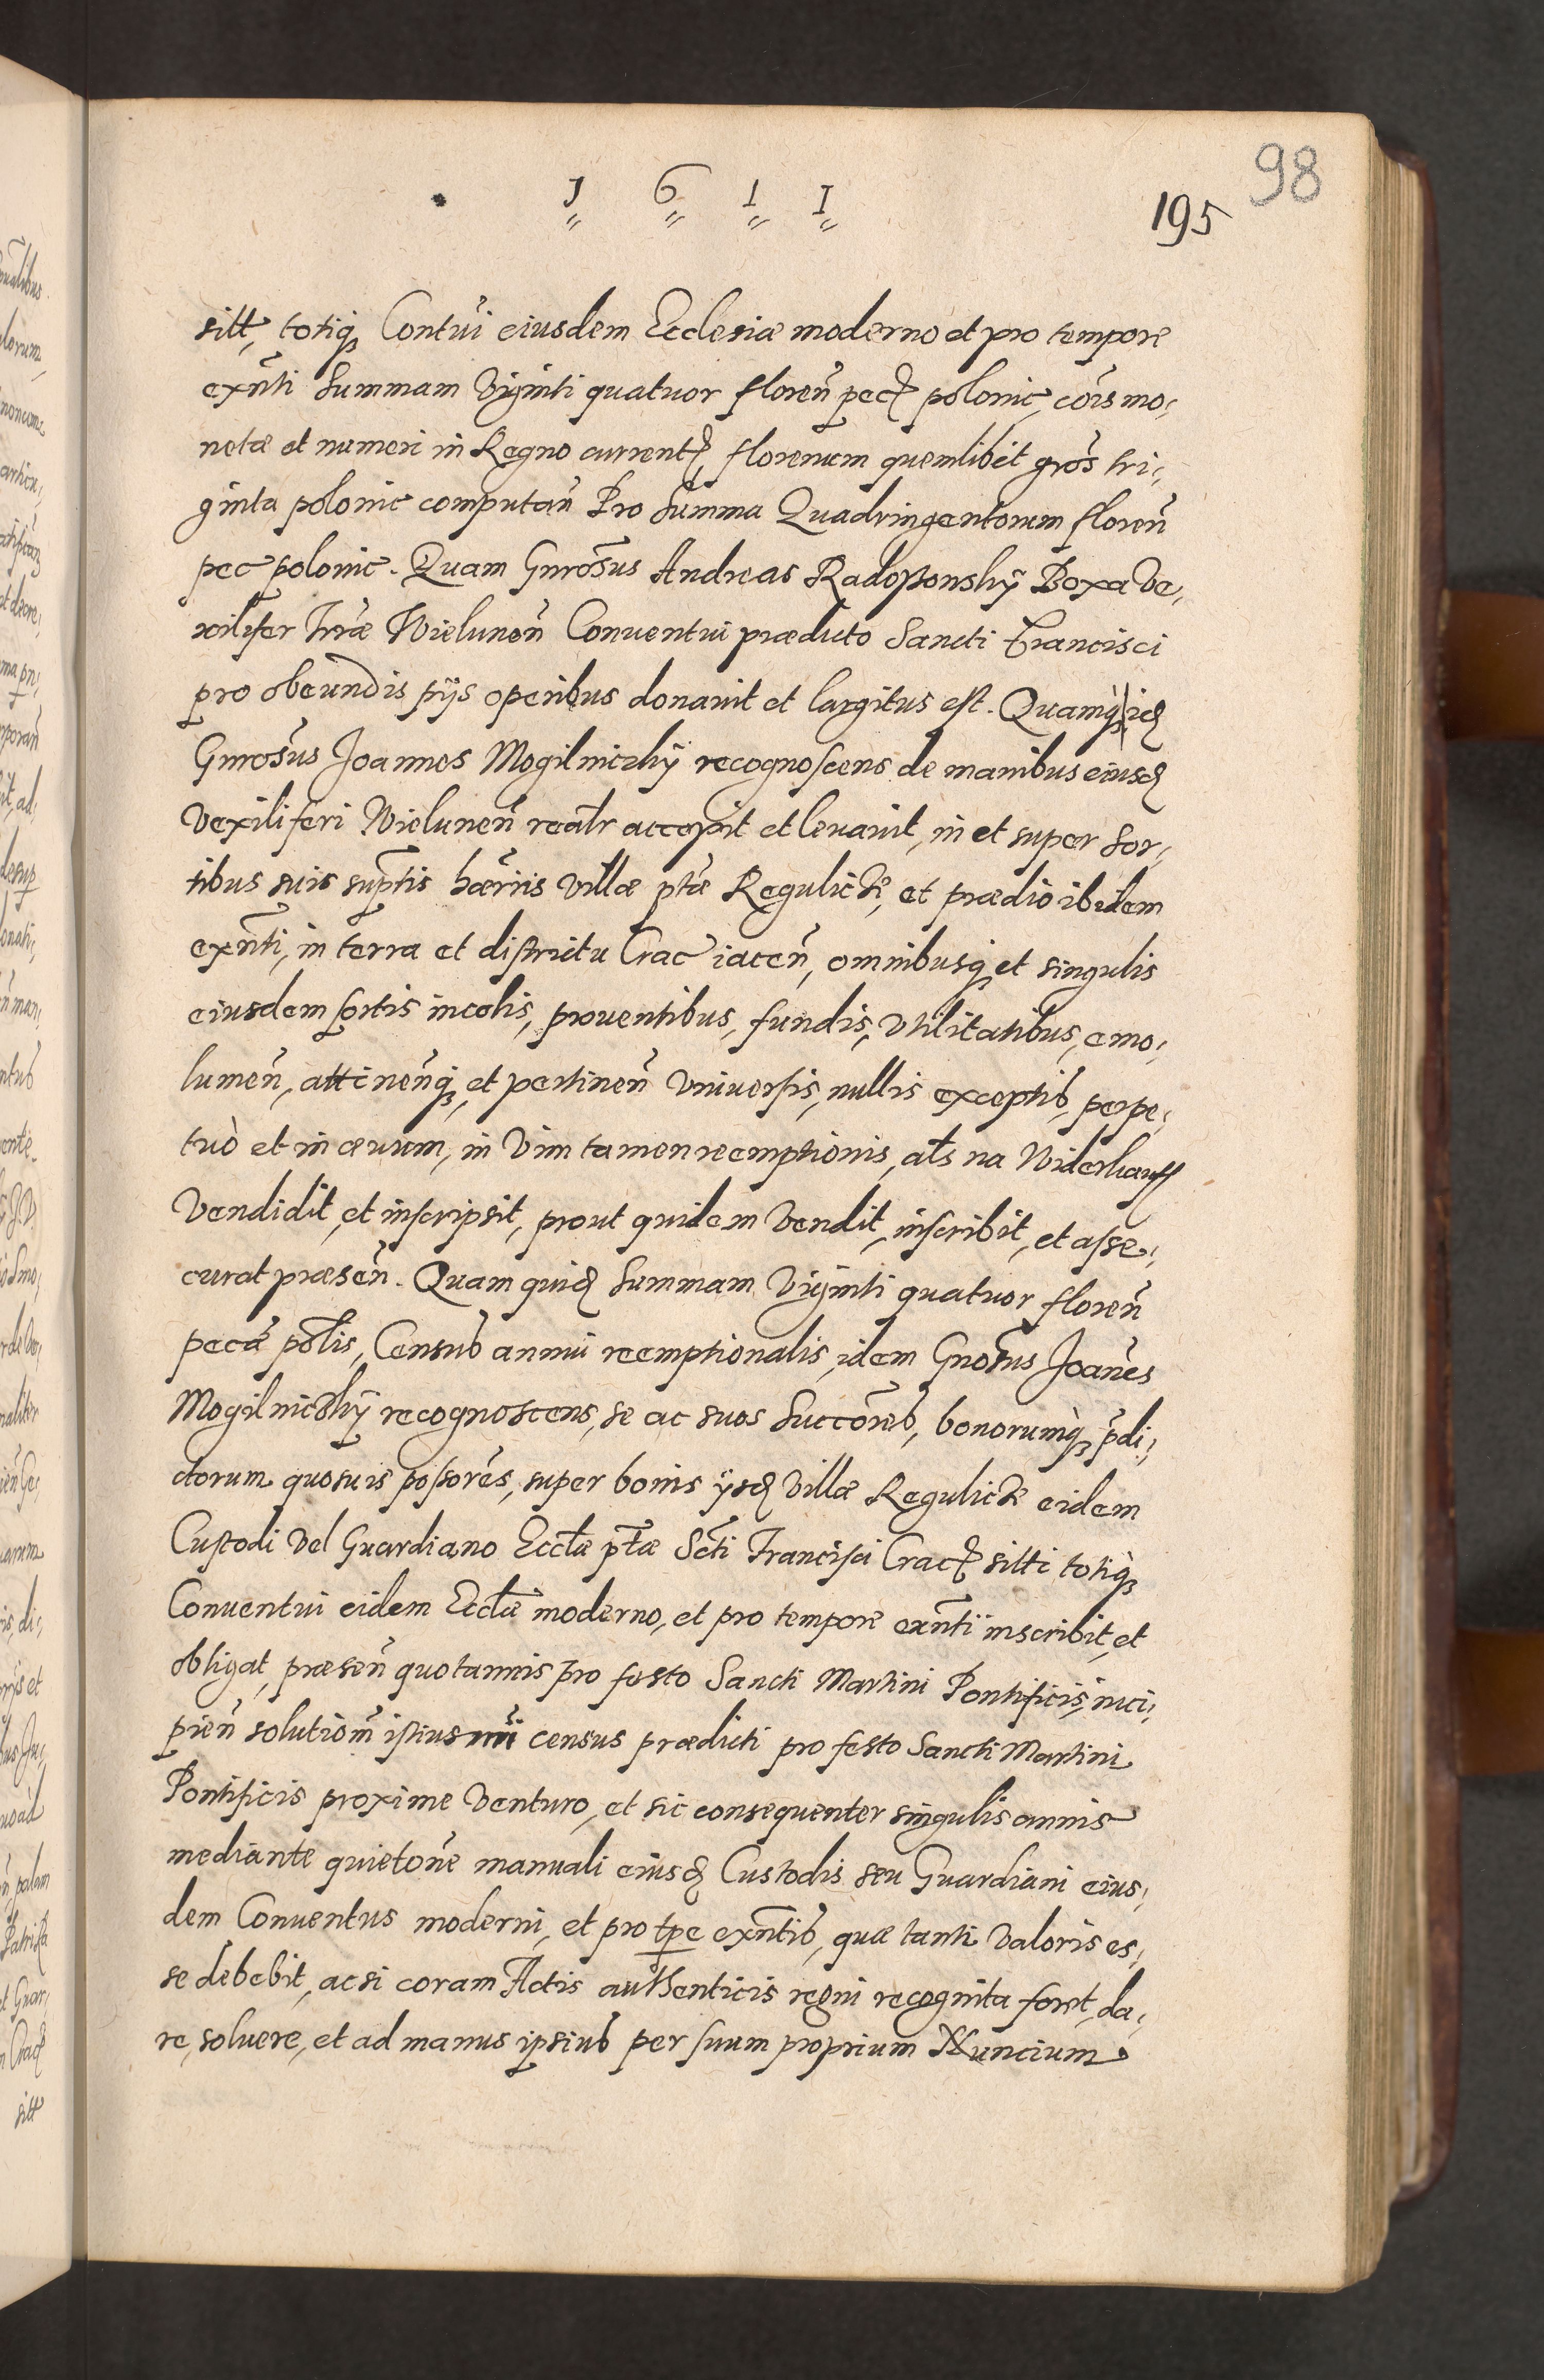 98
1 6 1 1
195
sitt, totiq3 Contui eiusdem Ecclesiæ moderno et pro tempore
exñti Summam Viginti quatuor floreñ pec polonic, cõis mo,
netæ et numeri in Regno current, florenum quemlibet gros̃ tri,
ginta polonic computañ Pro Summa Quadringentorum floreñ
pec polonic. Quam Gnrosus Andreas Radostowsky Boxa Ve,
xilifer Trræ Wieluneñ Conuentui prædicto Sancti Francisci
pro obeundis pijs operibus donauit et largitus est. Quamq3 id
Gnrosus Joannes Mogilniczky recognoscens de manibus eiusd
Vexiliferi Wieluneñ realr accepit et leuauit, in et super Sor,
tibus suis suptis hærriis Villæ ptæ Regulicze, et prædio ibidem
exñti, in terra et districtu Crac iaceñ, omnibusq3 et singulis
eiusdem sortis incolis, prouentibus, fundis, Vtilitatibus, emo,
lumeñ, attineñq3, et pertineñ Vniuersis, nullis exceptis, perpe,
tuò et in æuum, in Vim tamen reemptionis, als na Widerkauff
Vendidit, et inscripsit, prout quidem Vendit, inscribit, et asse,
curat præseñ. Quam quid Summam Viginti quatuor floreñ
pecæ polis, Census annui reemptionalis, idem Gnosus Joañes
Mogilniczky recognoscens, se ac suos Succõres, bonorumq3 p̃di,
ctorum quosuis possores, super bonis ijsd Villæ Regulicze eidem
Custodi Vel Guardiano Eccłæ ptæ Scti Francisci Crac sitti totiq3
Conuentui eidem Eccłæ moderno, et pro tempore exñti inscribit, et
obligat, præseñ quotannis pro festo Sancti Martini Pontificis, inci,
pieñ solutioñ istiusmõi census prædicti pro festo Sancti Martini
Pontificis proxime Venturo, et sic consequenter singulis annis
mediante quietone manuali eiusd Custodis seu Guardiani eius,
dem Conuentus moderni, et pro tpe exñtis, quæ tanti Valoris es,
se debebit, ac si coram Actis authenticis regni recognita foret, da,
re, soluere, et ad manus ipsius per suum proprium Nuncium